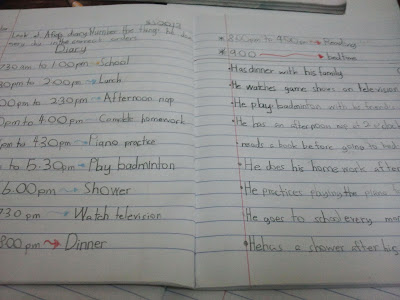 Look at Afiqs diary. Number the things he does
every day in the correct orders.
Diary
7.30 am to 1.00pm → School
30pm to 2:00pm → Lunch
00pm to 2:30pm → Afternoon nap
0pm to 4.00pm → Complete homework
pm to 4.30pm → Piano practice
to 5.30pm → Play badminton
6.00pm → Shower
7.30 pm → Watch television
8.00 pm → Dinner
* 8.00pm to 9.00pm → Reading
* 9.00 → bedtime
• Has dinner with his family
He watches game shows on television
• He plays badminton with his friends
• He has an afternoon nap at 2 o'clock
• reads a book before going to bed
• He does his home work after
• He practices playing the piano
• He goes to school every
• He has a shower after